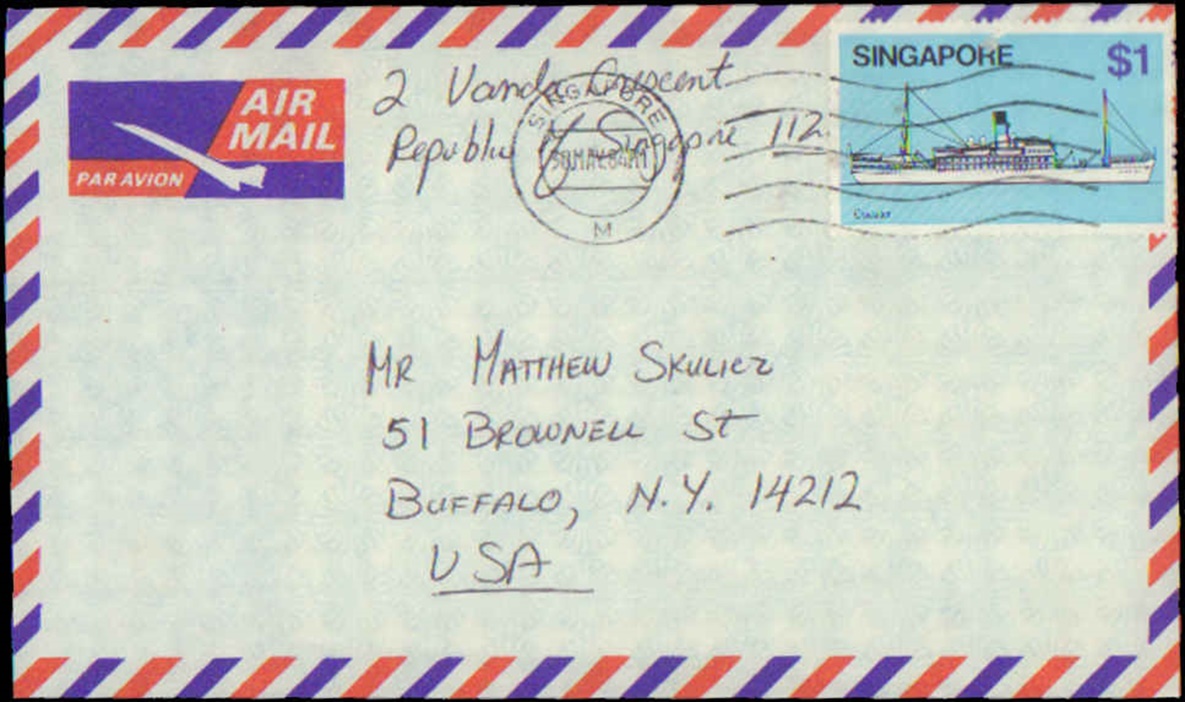 AIR
MAIL
PAR AVION
2 Vanda Crescent
Republic of Singapore 112
SINGAPORE
M
SINGAPORE $1
Mr MATTHEW SKULICZ
51 BROWNELL St
BUFFALO, N.Y. 14212
USA